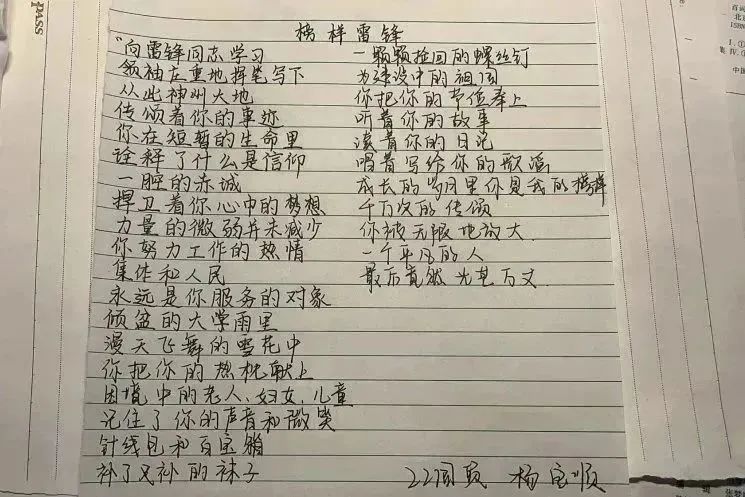 榜样雷锋
"向雷锋同志学习
领袖庄重地挥笔写下
从此神州大地
传颂着你的事迹
你在短暂的生命里
诠释了什么是信仰
一腔的赤诚
捍卫着你心中的梦想
力量的微弱并未减少
你努力工作的热情
集体和人民
永远是你服务的对象
倾盆的大学雨里
漫天飞舞的雪花中
你把你的热忱献上
困境中的老人、妇女、儿童
记住了你的声音和微笑
针线包和百宝箱
补了又补的袜子
一颗颗捡回的螺丝钉
为建设中的祖国
你把你的节俭奉上
听着你的故事
读着你的日记
唱着写给你的歌谣
成长的岁月里你是我的榜样
千万次的传颂
你被无限地放大
一个平凡的人
最后竟然光芒万丈
杨宝顺
PASS